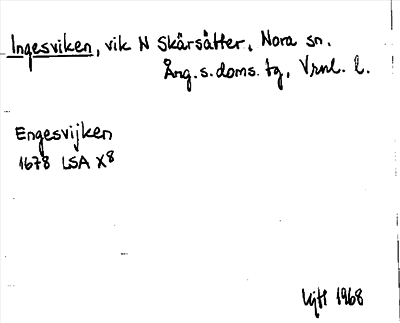 Ingesviken, vik N Skärsätter, Nora sn.
Ång. s. doms. tg, Vrnl. l.
Engesvijken
1678 LSA X8
1968